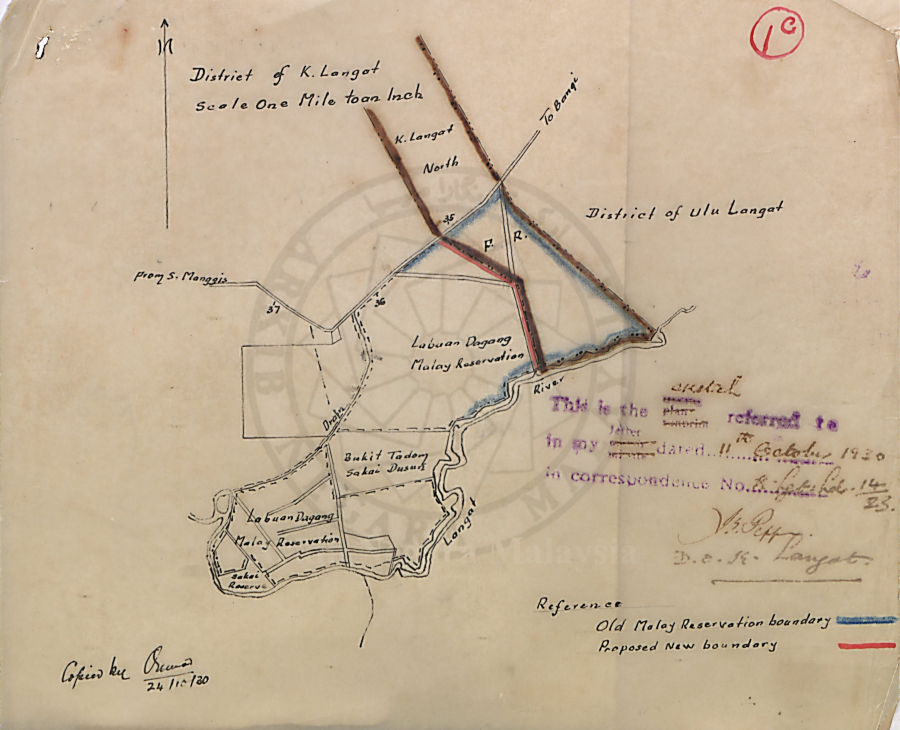 1c
N
District of K. Langat
Scale One Mile to an Inch
K. Langat
North
To Bangi
District of Ulu Langat
35
F. R.
From S. Manggis
37
36
Labuan Dagang
Malay Reservation
River
Drain
Bukit Tadom
Sakai Dusun
Langat
Labuan Dagang
Malay Reservation
Sakai
Reserve
This is the plan referred to
in my letter dated 11th October 1930
in correspondence No. 14/23.
D.O. K. Langat
Reference
Old Malay Reservation boundary
Proposed New boundary
Copied by
24/10/30
ARKIB NEGARA MALAYSIA